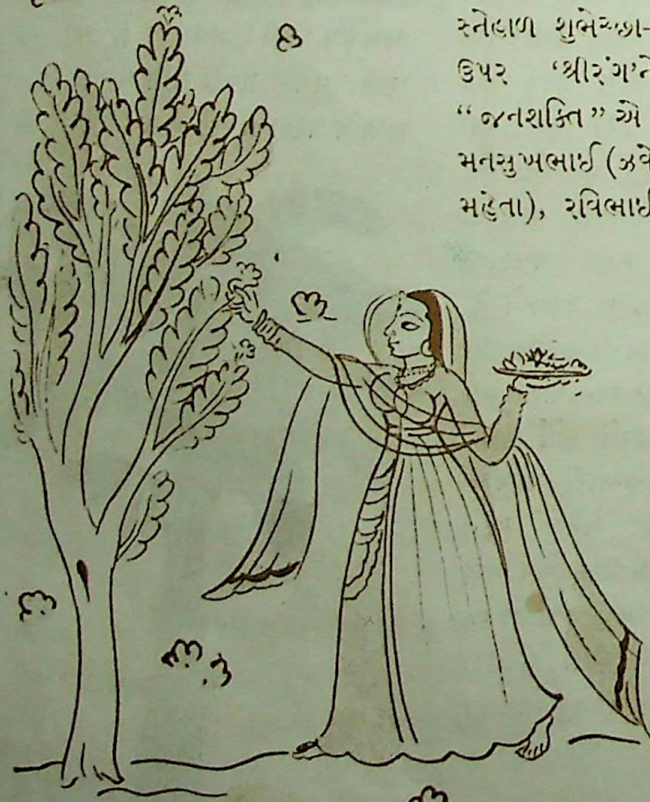 સ્નેહાળ શુભેચ્છા-
ઉપર 'શ્રીરંગ'ને
“જનશક્તિ” એ
મનસુખભાઈ (ઝવે
મહેતા), રવિભાઈ